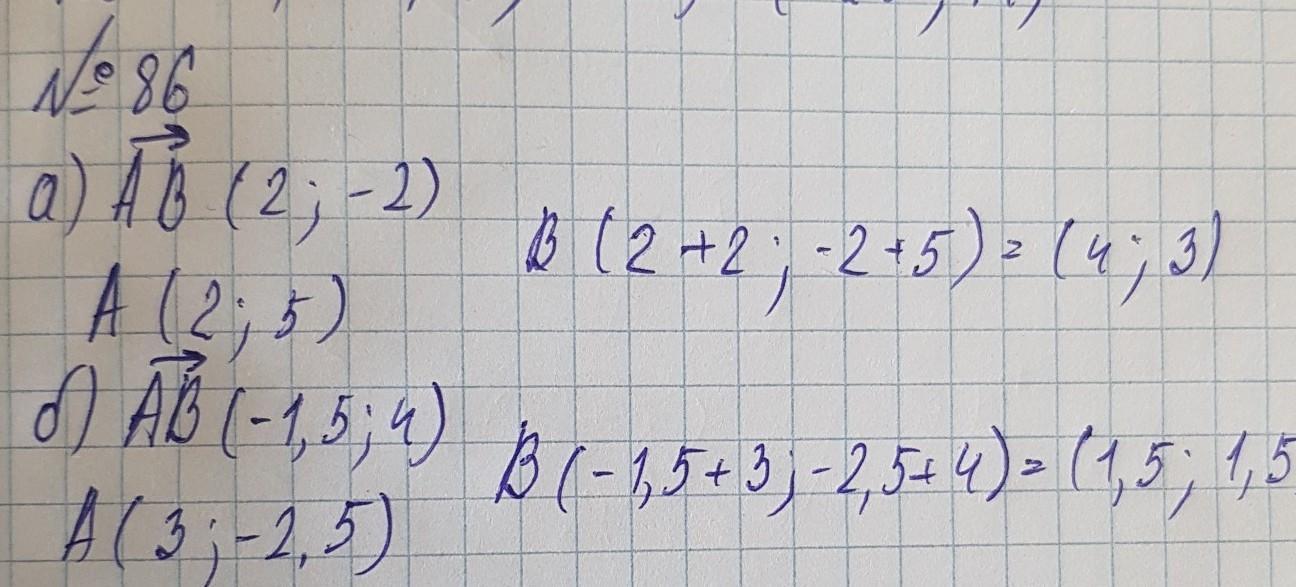 № 86
а) AB (2; -2)
B (2+2; -2+5) = (4; 3)
A (2; 5)
б) AB (-1,5; 4)
B (-1,5+3; -2,5+4) = (1,5; 1,5
A (3; -2,5)